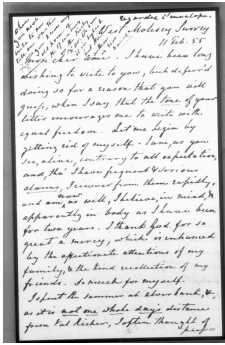 regarded Envelope
West Molesey Surrey
11 Feb. 55
Mon cher ami. I have been long
wishing to write to you, but deferr'd
doing so for a reason that you will
guess, when I say that the tone of your
letter encourages me to write with
equal freedom. Let me begin by
getting rid of myself. I am, as you
see, alive, contrary to all expectation,
and, tho' I have frequent & serious
alarms, I recover from them rapidly,
and am, now as well, I believe, in mind, &
apparently in body as I have been
for two years. I thank God for so
great a mercy, which is enhanced
by the affectionate attentions of my
family, & the kind recollection of my
friends. So much for myself.
I spent the summer at &,
as it is not one whole day's distance
from I often thought of